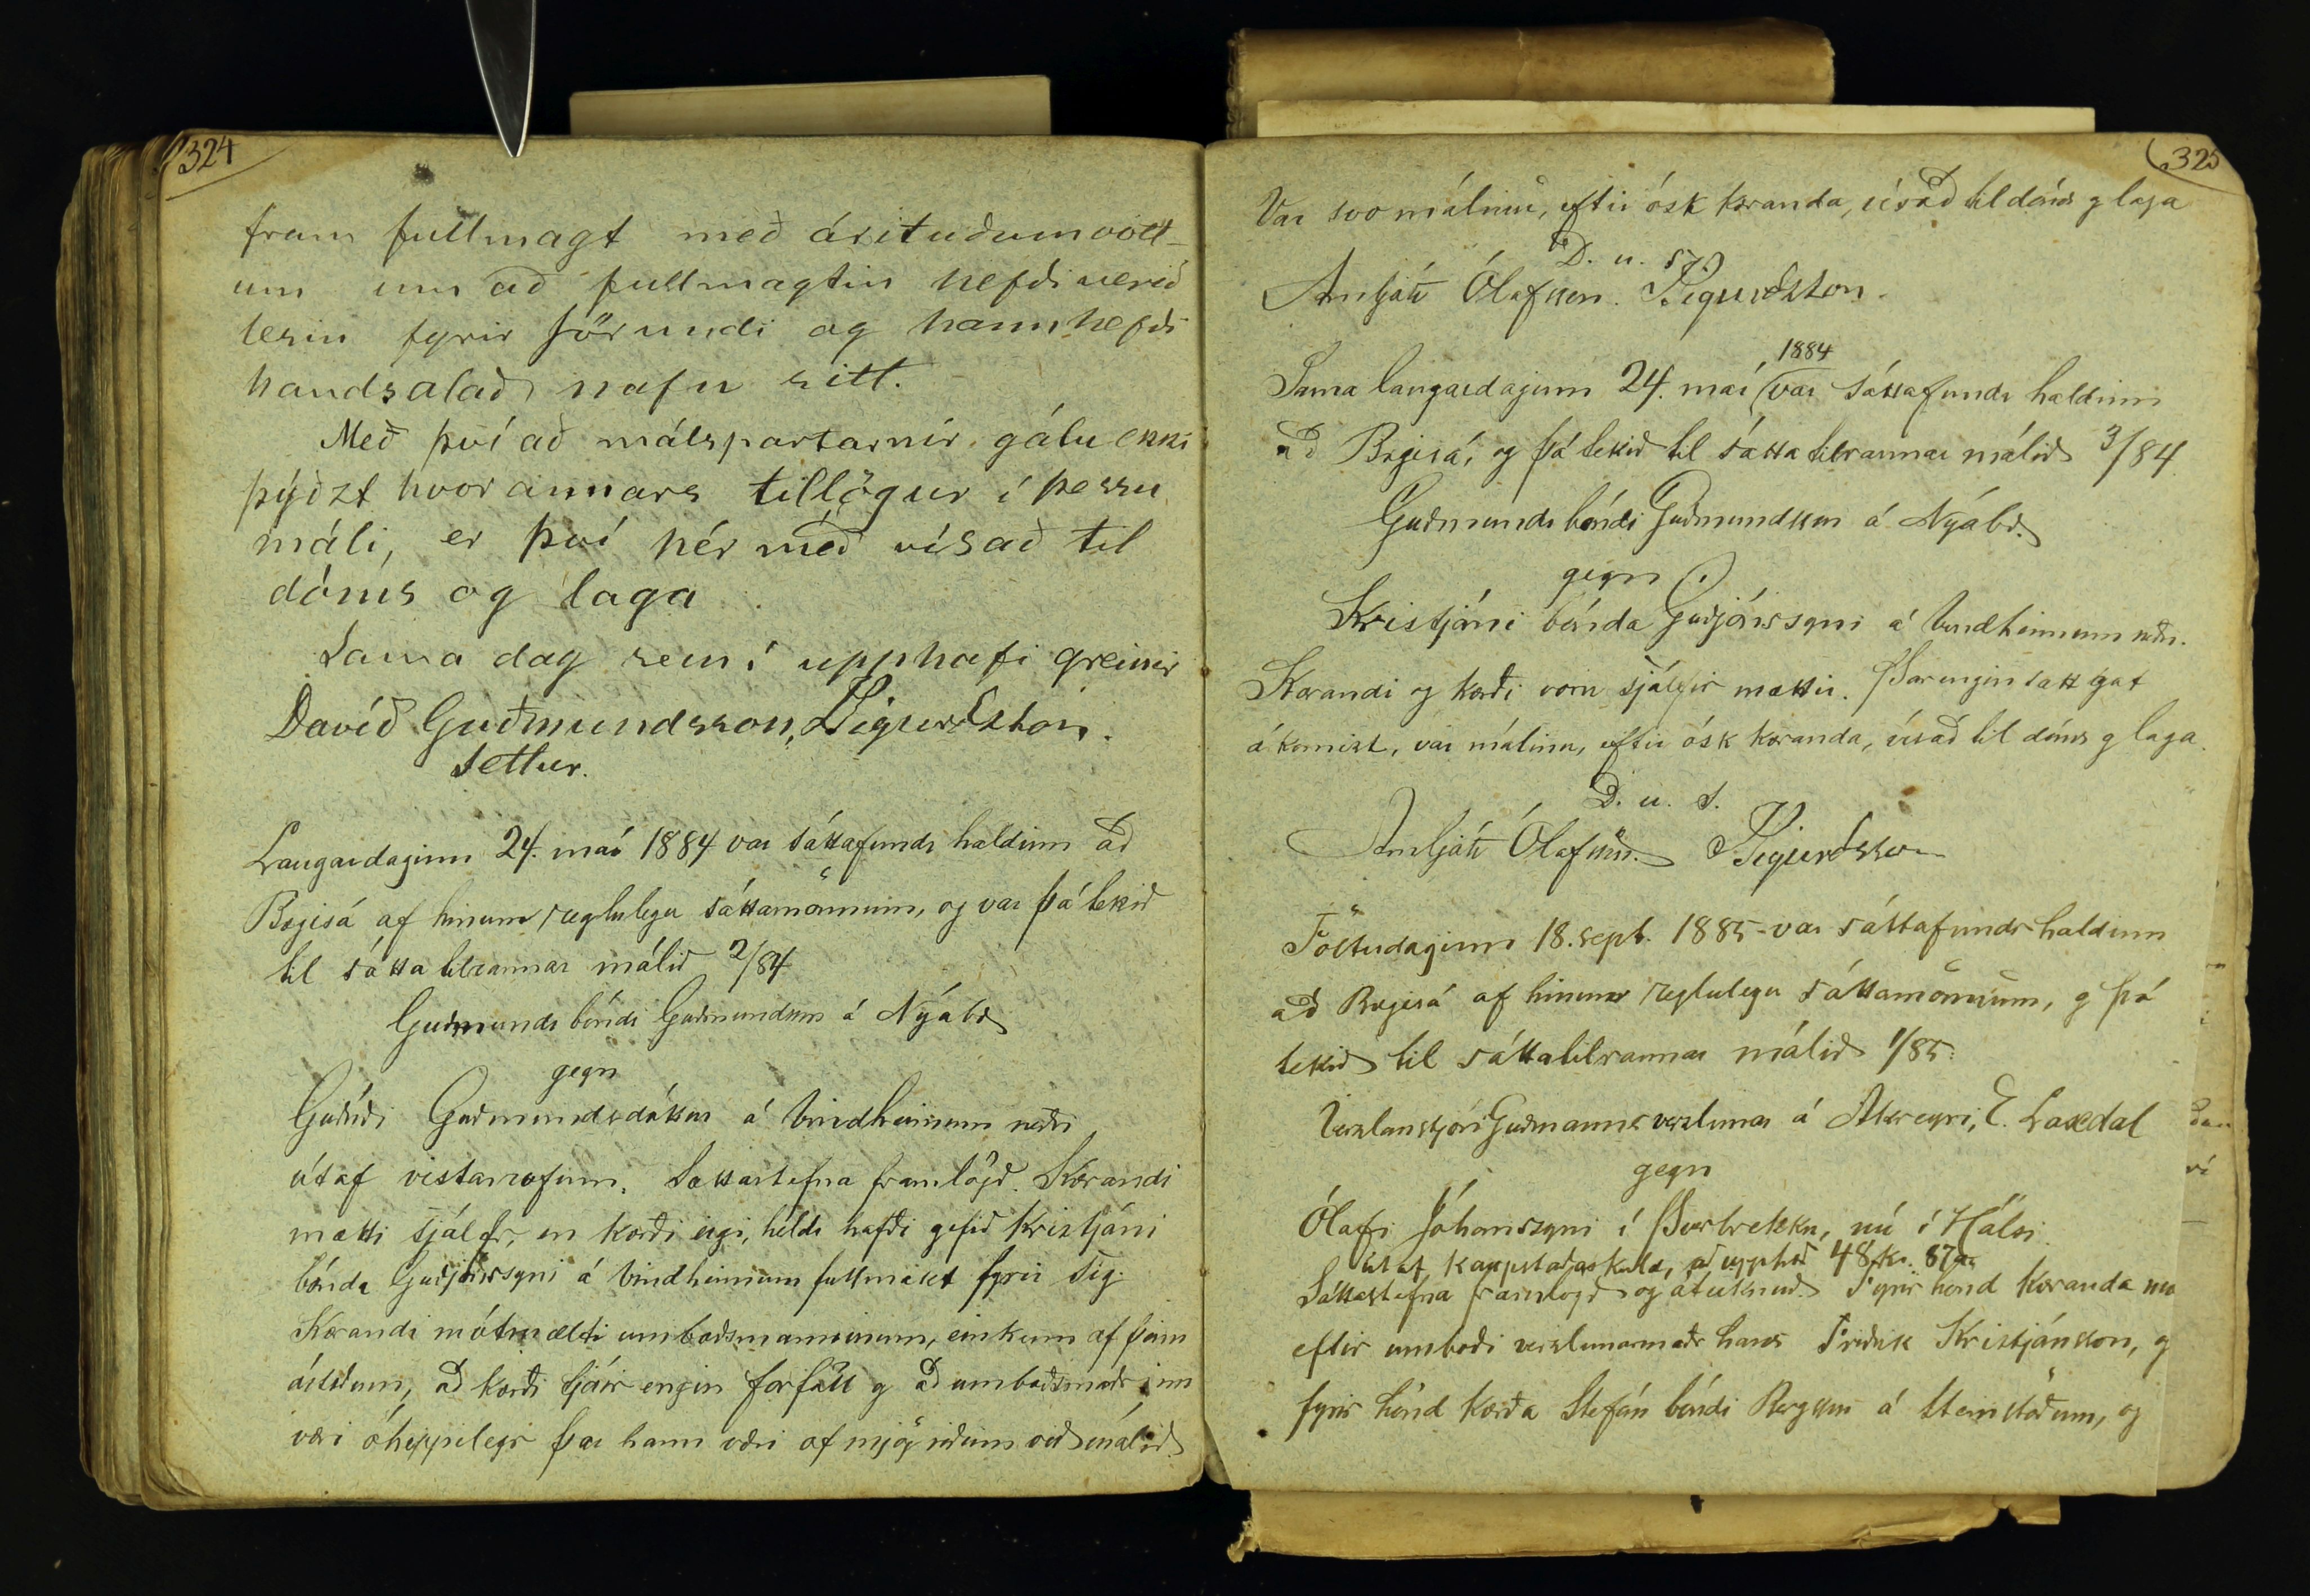 324
fram fullmagt með árituðum vott-
um um að fullmagtin hefði verið
lesin fyrir Jörundi og hann hefði
handsalað nafn sitt.
Með því að málspartarnir gátu ekki
þýðzt hvor annars tillögur í þessu
máli, er því hér með vísað til
dóms og laga
Sama dag sem í upphafi greinir
Davíð Guðmundsson, Sigurðsson.
settur.
Laugardaginn 24. maí 1884 var sáttafundr haldinn að
Bægisá af hinum reglulegu sáttamönnum, og var þá tekið
til sátta tilraunar málið 2/84
Guðmundr bóndi Guðmundsson á Nýabæ
gegn
Guðríði Guðmundsdóttur á Vindheimum neðri
útaf vistarrofum. Sáttastefna framlögð. Kærandi
mætti sjálfr, en kærði eigi, heldr hafði gefið Kristjáni
bónda Guðjónssyni á Vindheimum fullmakt fyrir sig.
Kærandi mótmælti umboðsmanninum, einkum af þeim
ástæðum, að kærði tjáir engin forföll og að umboðsmaðrinn
væri óheppilegr þar hann væri of mjög riðinn við málið
325
Var svo málinu, eftir ósk kæranda, vísað til dóms og laga
D. u. s.
Arnljótr Ólafsson. Sigurðsson.
Sama laugardaginn 24. maí 1884 var sáttafundr haldinn
að Bægisá, og þá tekið til sátta tilraunar málið 3/84
Guðmundr bóndi Guðmundsson á Nýabæ
gegn
Kristjáni bónda Guðjónssyni á Vindheimum neðri.
Kærandi og kærði voru sjálfir mættir. Þar engin sætt gat
á komizt, var málinu, eftir ósk kæranda, vísað til dóms og laga.
D. u. s.
Arnljótr Ólafsson. Sigurðsson
Föstudaginn 18. sept. 1885 var sáttafundr haldinn
að Bægisá af hinum reglulegu sáttamönnum, og þá
tekið til sáttatilraunar málið 1/85:
Verzlunstjóri Guðmanns verzlunar á Akreyri, E. Laxdal
gegn
Ólafi Jóhanssyni í Þverbrekku, nú í Hálsi.
útaf kaupstaðaskuld, að upphæð 48 kr. 87 a.
Sáttastefna framlögð og áteiknuð. Fyrir hönd kæranda mæ
eftir umboði verzlunarmaðr hans Friðrik Kristjánsson, og
fyrir hönd kærða Stefán bóndi Bergsson á Steinstöðum, og